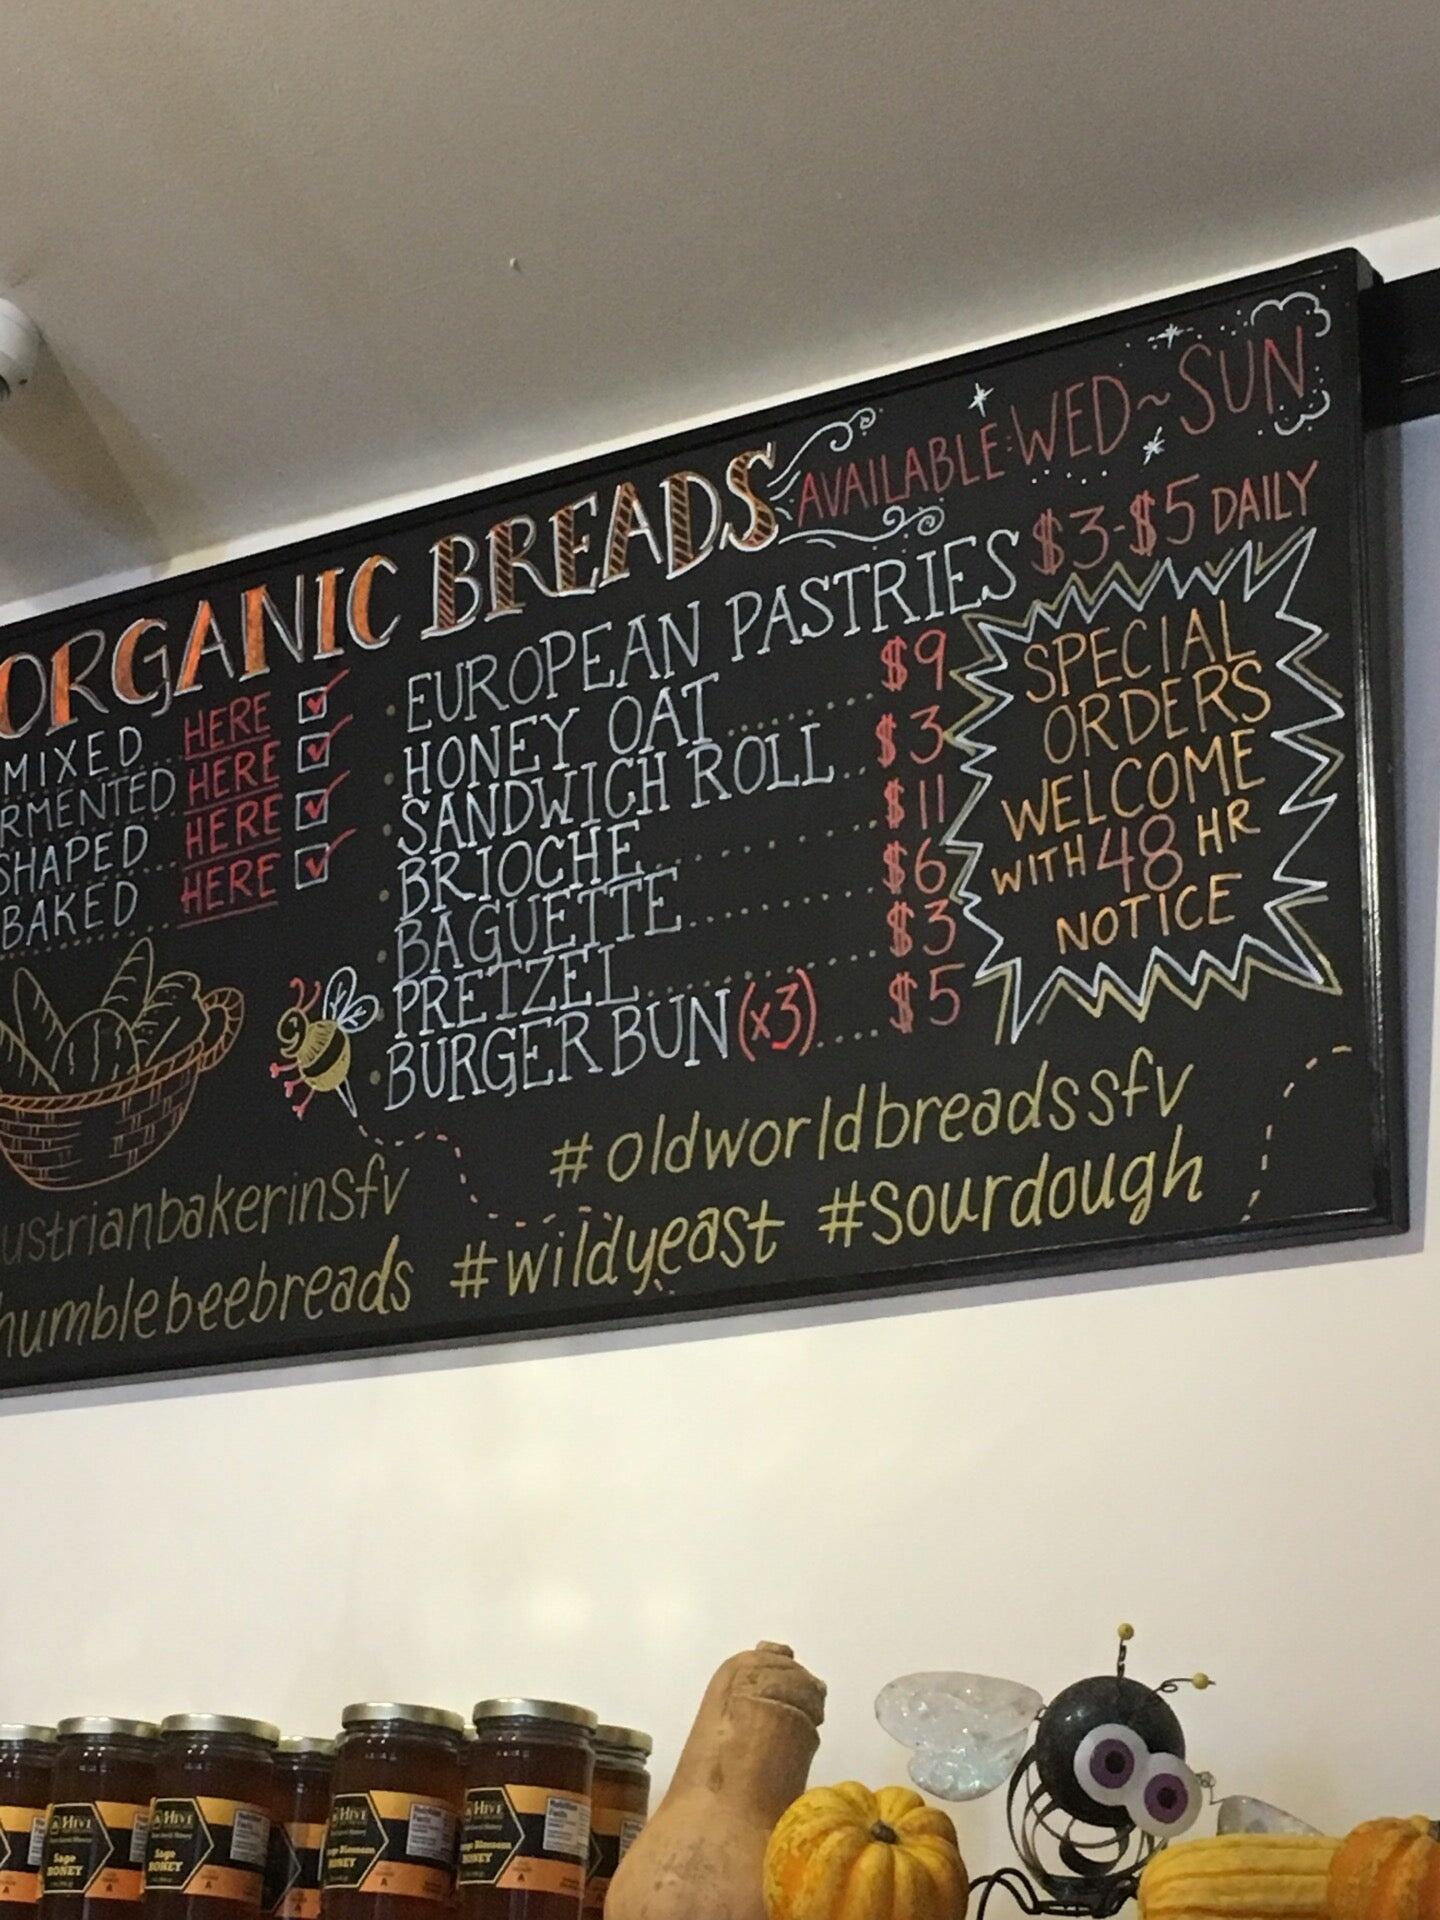 ORGANIC BREADS AVAILABLE: WED~SUN
MIXED HERE
RMENTED HERE
SHAPED HERE
BAKED HERE
EUROPEAN PASTRIES $3-$5 DAILY
HONEY OAT $9
SANDWICH ROLL $3
BRIOCHE $11
BAGUETTE $6
PRETZEL $3
BURGER BUN (x3) $5
SPECIAL
ORDERS
WELCOME
WITH 48 HR
NOTICE
ustrianbakerinsfv #oldworldbreadssfv
humblebeebreads #wildyeast #sourdough
HIVE
Sage
HONEY
A
HIVE
Sage
HONEY
A
HIVE
Blossom
HONEY
A
HIVE
Blossom
HONEY
A